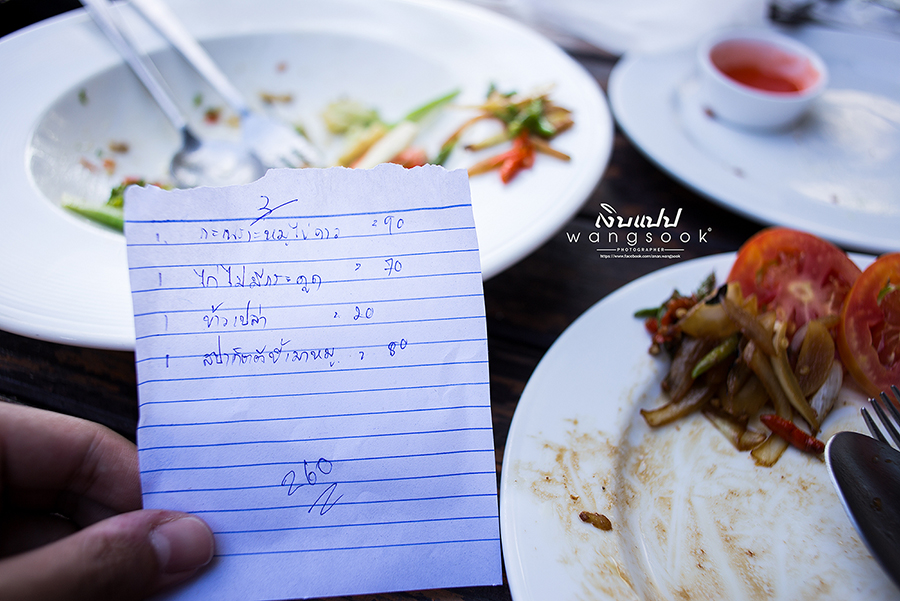 3
1. กะเพราะหมูไข่ดาว = 90
1 ไก่ไม่มีกระดูก = 70
1 ข้าวเปล่า = 20
1 สปาเก็ตตี้ขี้เมาหมู = 80
260
เงินแปป
wangsook
PHOTOGRAPHER
https://www.facebook.com/anan.wangsook